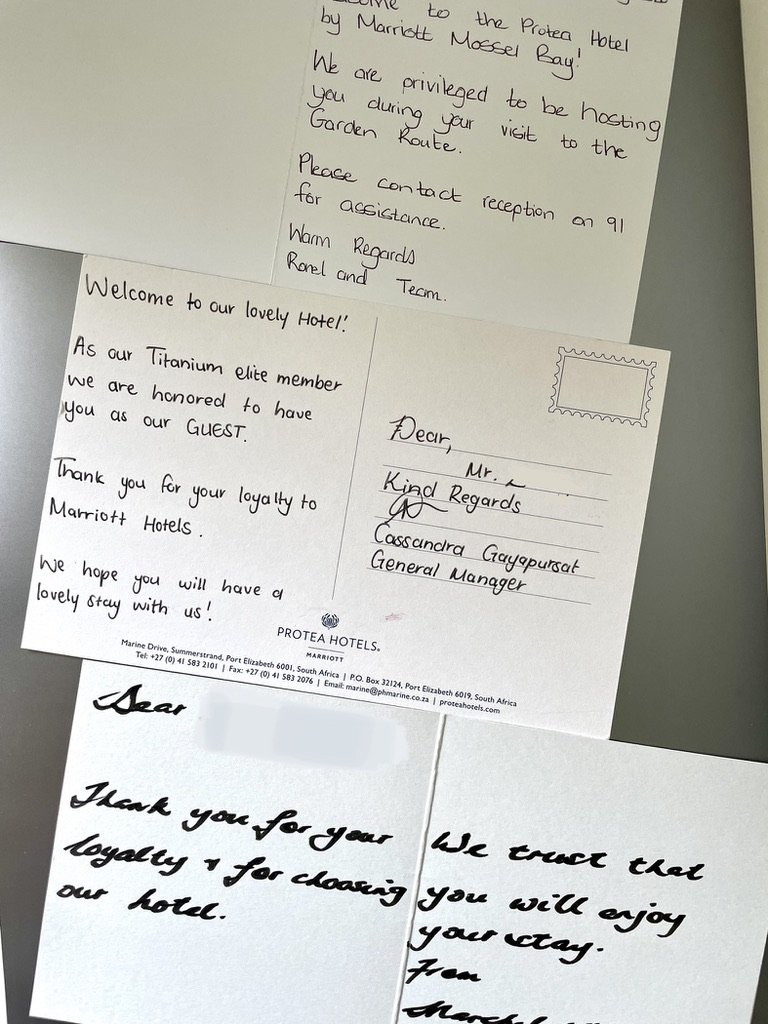 to the Protea Hotel
by Marriott Mossel Bay!
We are privileged to be hosting
you during your visit to the
Garden Route.
Please contact reception on 91
for assistance.
Warm Regards
and Team.
Welcome to our lovely Hotel!
As our Titanium elite member
we are honored to have
you as our GUEST.
Thank you for your loyalty to
Marriott Hotels.
We hope you will have a
lovely stay with us!
Dear,
Mr.
Kind Regards
Cassandra Gayapursat
General Manager
PROTEA HOTELS.
MARRIOTT
Marine Drive, Summerstrand, Port Elizabeth 6001, South Africa | P.O. Box 32124, Port Elizabeth 6019, South Africa
Tel: +27 (0) 41 583 2101 | Fax: +27 (0) 41 583 2076 | Email: marine@phmarine.co.za | proteahotels.com
Dear
Thank you for your
loyalty & for choosing
our hotel.
We trust that
you will enjoy
your stay.
From